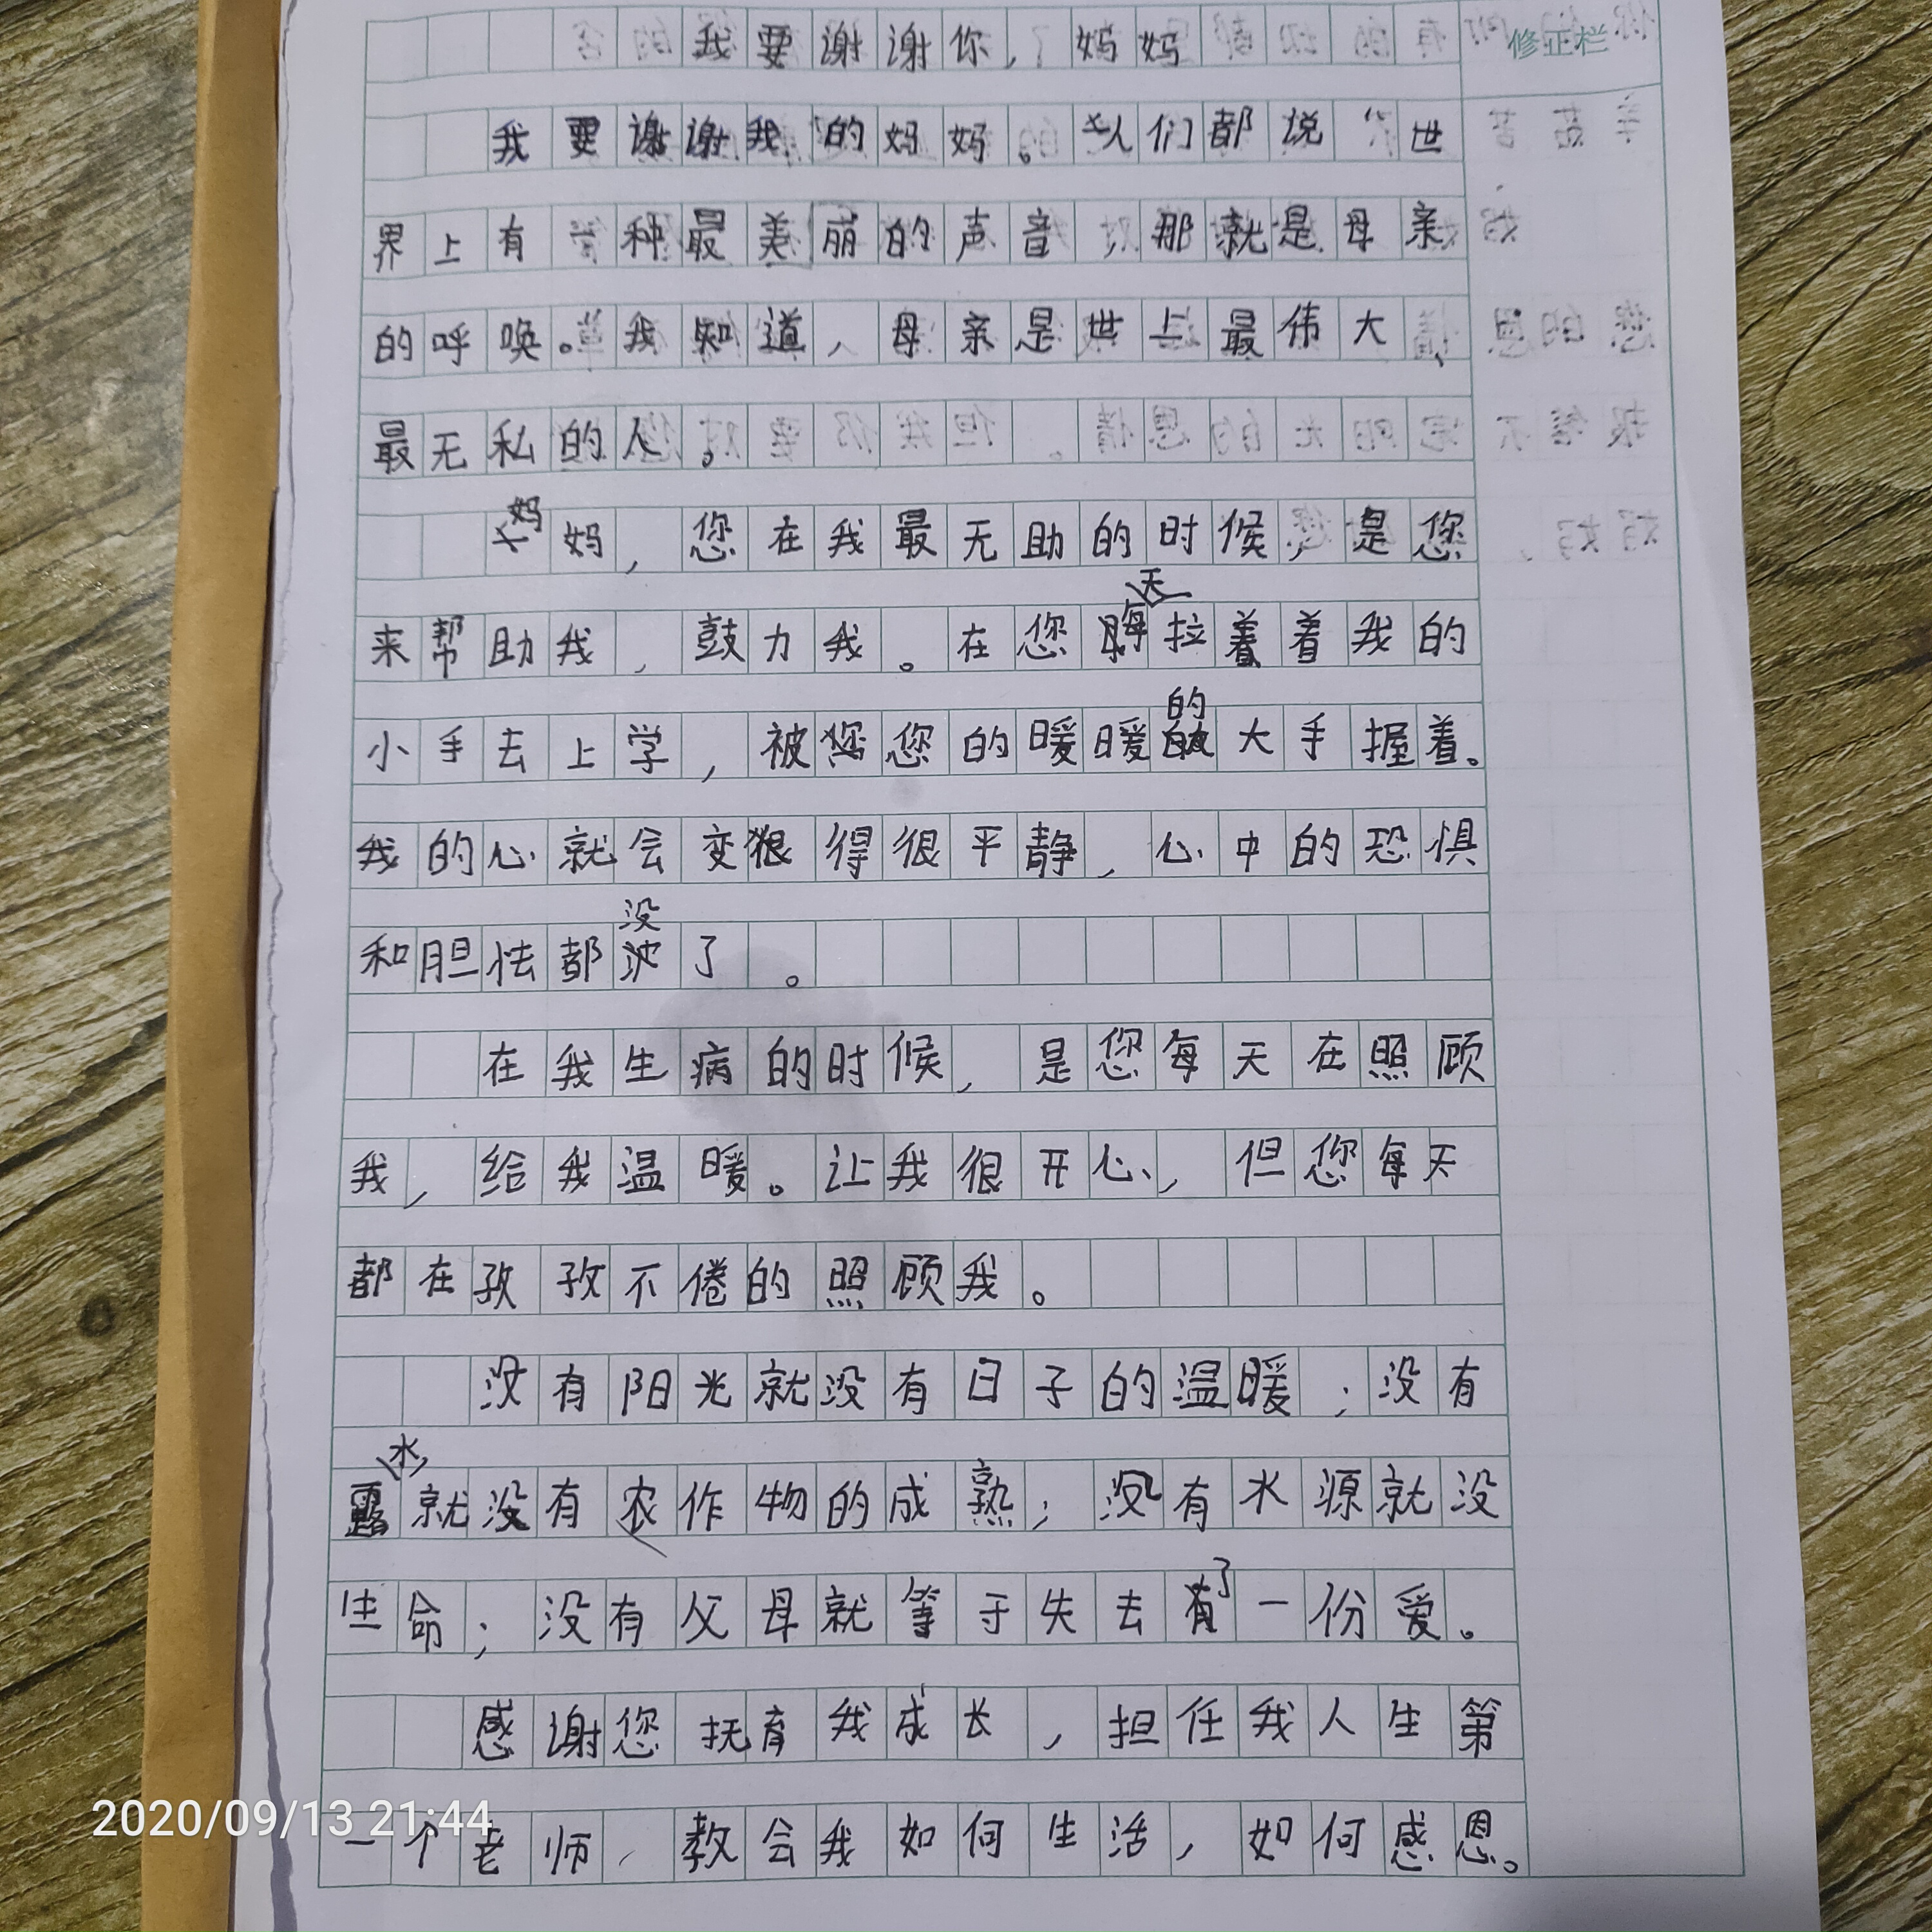 我要谢谢你，妈妈
修正栏
我要谢谢我的妈妈。人们都说“世
界上有一种最美丽的声音，那就是母亲
的呼唤。我知道，母亲是世上最伟大、
最无私的人。
妈妈，您在我最无助的时候，是您
来帮助我，鼓力我。在您每天拉着着我的
小手去上学，被您您的暖暖的大手握着。
我的心就会变得很平静，心中的恐惧
和胆怯都没了。
在我生病的时候，是您每天在照顾
我，给我温暖。让我很开心，但您每天
都在孜孜不倦的照顾我。
没有阳光就没有日子的温暖；没有
露水就没有农作物的成熟；没有水源就没
生命；没有父母就等于失去了一份爱。
感谢您抚育我成长，担任我人生第
一个老师，教会我如何生活，如何感恩。
2020/09/13 21:44